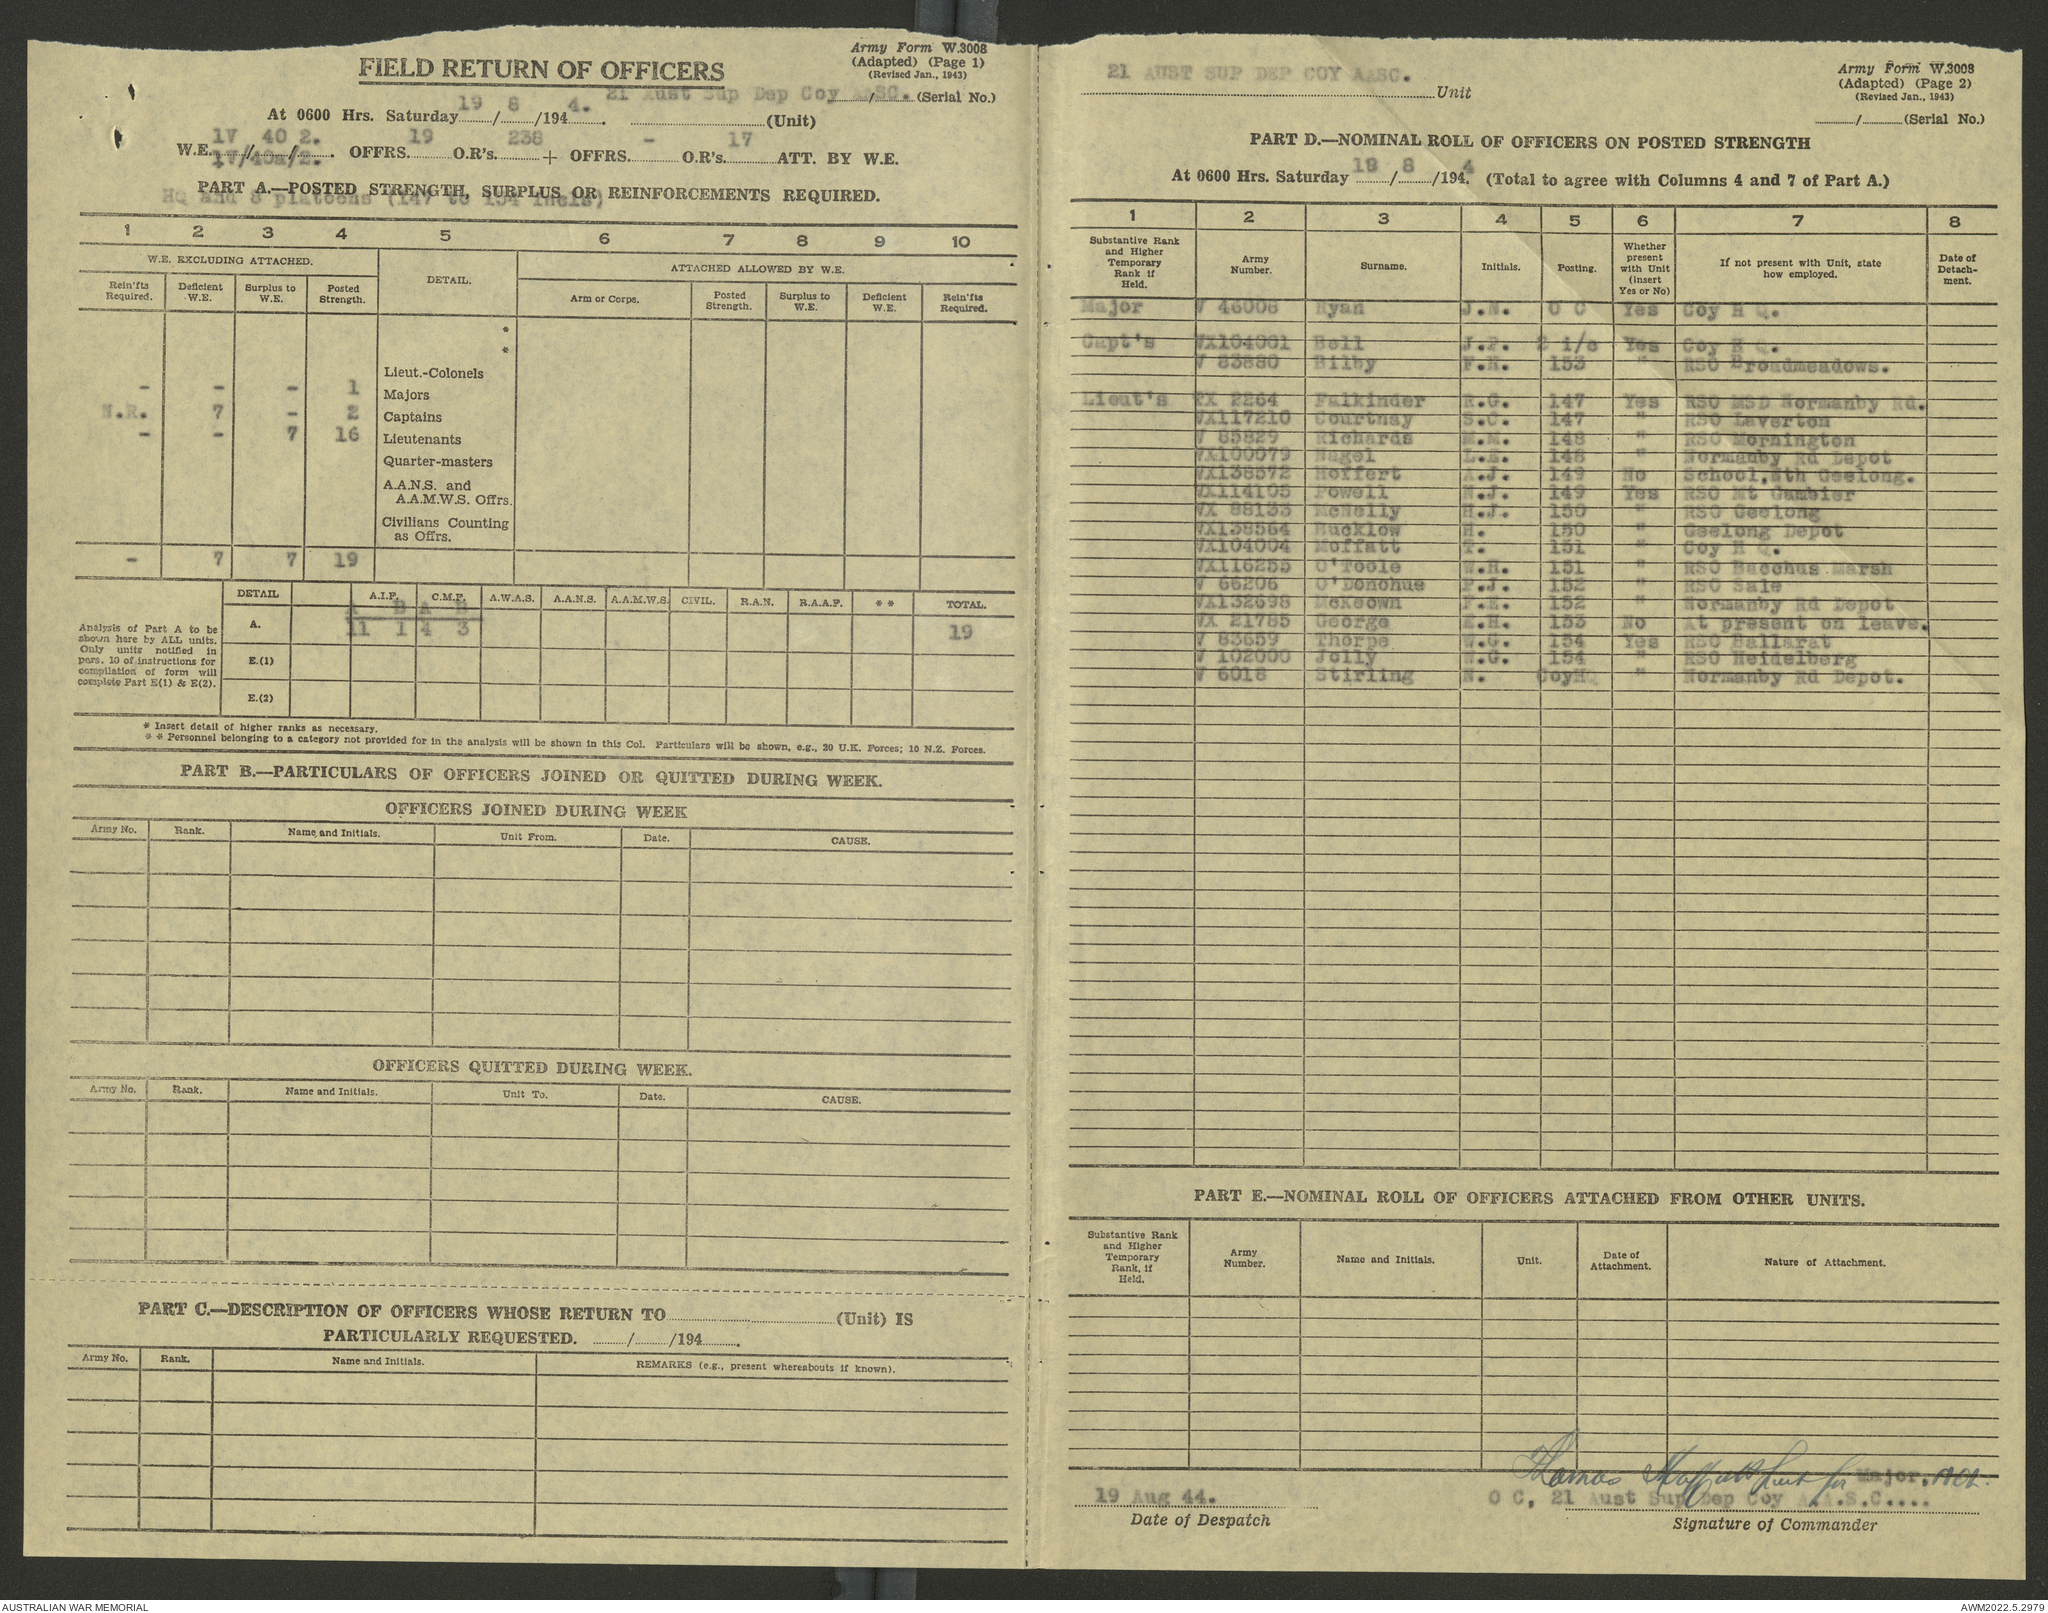 Army Form W.3008
(Adapted) (Page 1)
(Revised Jan., 1943)
FIELD RETURN OF OFFICERS
21 Aust Sup Dep Coy AASC. / (Serial No.)
At 0600 Hrs. Saturday 19 / 8 /194 4. (Unit)
W.E. 1V / 40 / 2. OFFRS. 19 O.R's. 238 + OFFRS. - O.R's. 17 ATT. BY W.E.
1V/40a/2.
PART A.—POSTED STRENGTH, SURPLUS OR REINFORCEMENTS REQUIRED.
HQ and 8 platoons (147 to 154 incls)
1 2 3 4 5 6 7 8 9 10
W.E. EXCLUDING ATTACHED. DETAIL. ATTACHED ALLOWED BY W.E.
Rein'fts Required. Deficient W.E. Surplus to W.E. Posted Strength. Arm or Corps. Posted Strength. Surplus to W.E. Deficient W.E. Rein'fts Required.
*
*
Lieut.-Colonels
- - - 1 Majors
N.R. 7 - 2 Captains
- - 7 16 Lieutenants
Quarter-masters
A.A.N.S. and
A.A.M.W.S. Offrs.
Civilians Counting
as Offrs.
- 7 7 19
DETAIL A.I.F. C.M.F. A.W.A.S. A.A.N.S. A.A.M.W.S. CIVIL. R.A.N. R.A.A.F. * * TOTAL.
A B A B
A. 11 1 4 3 19
E.(1)
E.(2)
Analysis of Part A to be
shown here by ALL units.
Only units notified in
pars. 10 of instructions for
compilation of form will
complete Part E(1) & E(2).
* Insert detail of higher ranks as necessary.
* * Personnel belonging to a category not provided for in the analysis will be shown in this Col. Particulars will be shown, e.g., 20 U.K. Forces; 10 N.Z. Forces.
PART B.—PARTICULARS OF OFFICERS JOINED OR QUITTED DURING WEEK.
OFFICERS JOINED DURING WEEK
Army No. Rank. Name and Initials. Unit From. Date. CAUSE.
OFFICERS QUITTED DURING WEEK.
Army No. Rank. Name and Initials. Unit To. Date. CAUSE.
PART C.—DESCRIPTION OF OFFICERS WHOSE RETURN TO (Unit) IS
PARTICULARLY REQUESTED. / /194 .
Army No. Rank. Name and Initials. REMARKS (e.g., present whereabouts if known).
21 AUST SUP DEP COY AASC. Unit
Army Form W.3008
(Adapted) (Page 2)
(Revised Jan., 1943)
/ (Serial No.)
PART D.—NOMINAL ROLL OF OFFICERS ON POSTED STRENGTH
At 0600 Hrs. Saturday 19 / 8 /194. 4 (Total to agree with Columns 4 and 7 of Part A.)
1 2 3 4 5 6 7 8
Substantive Rank and Higher Temporary Rank if Held. Army Number. Surname. Initials. Posting. Whether present with Unit (insert Yes or No) If not present with Unit, state how employed. Date of Detach-ment.
Major V 46008 Ryan J.N. O C Yes Coy H Q.
Capt's VX104001 Bell J.P. 2 i/c Yes Coy H Q.
V 83880 Bilby F.H. 153 " RSO Broadmeadows.
Lieut's PX 2264 Falkinder R.G. 147 Yes RSO MSD Normanby Rd.
VX117210 Courtnay S.C. 147 " RSO Laverton
V 85829 Richards M.M. 148 " RSO Mornington
VX100079 Nagel L.E. 148 " Normanby Rd Depot
VX138572 Hoffert A.J. 149 No School,Nth Geelong.
VX114105 Powell N.J. 149 Yes RSO Mt Gambier
VX 88133 McNelly H.J. 150 " RSO Geelong
VX138564 Hucklow H. 150 " Geelong Depot
VX104004 Moffatt T. 151 " Coy H Q.
VX116255 O'Toole W.H. 151 " RSO Bacchus Marsh
V 66206 O'Donohue P.J. 152 " RSO Sale
VX132698 McKeown F.E. 152 " Normanby Rd Depot
VX 21785 George E.H. 153 No At present on leave.
V 83659 Thorpe W.G. 154 Yes RSO Ballarat
V 102000 Jolly W.G. 154 " RSO Heidelberg
V 6018 Stirling N. CoyHQ " Normanby Rd Depot.
PART E.—NOMINAL ROLL OF OFFICERS ATTACHED FROM OTHER UNITS.
Substantive Rank and Higher Temporary Rank, if Held. Army Number. Name and Initials. Unit. Date of Attachment. Nature of Attachment.
Thomas Moffatt Lieut for Major,
19 Aug 44. O C, 21 Aust Sup Dep Coy A.A.S.C....
Date of Despatch Signature of Commander
AUSTRALIAN WAR MEMORIAL AWM2022.5.2979